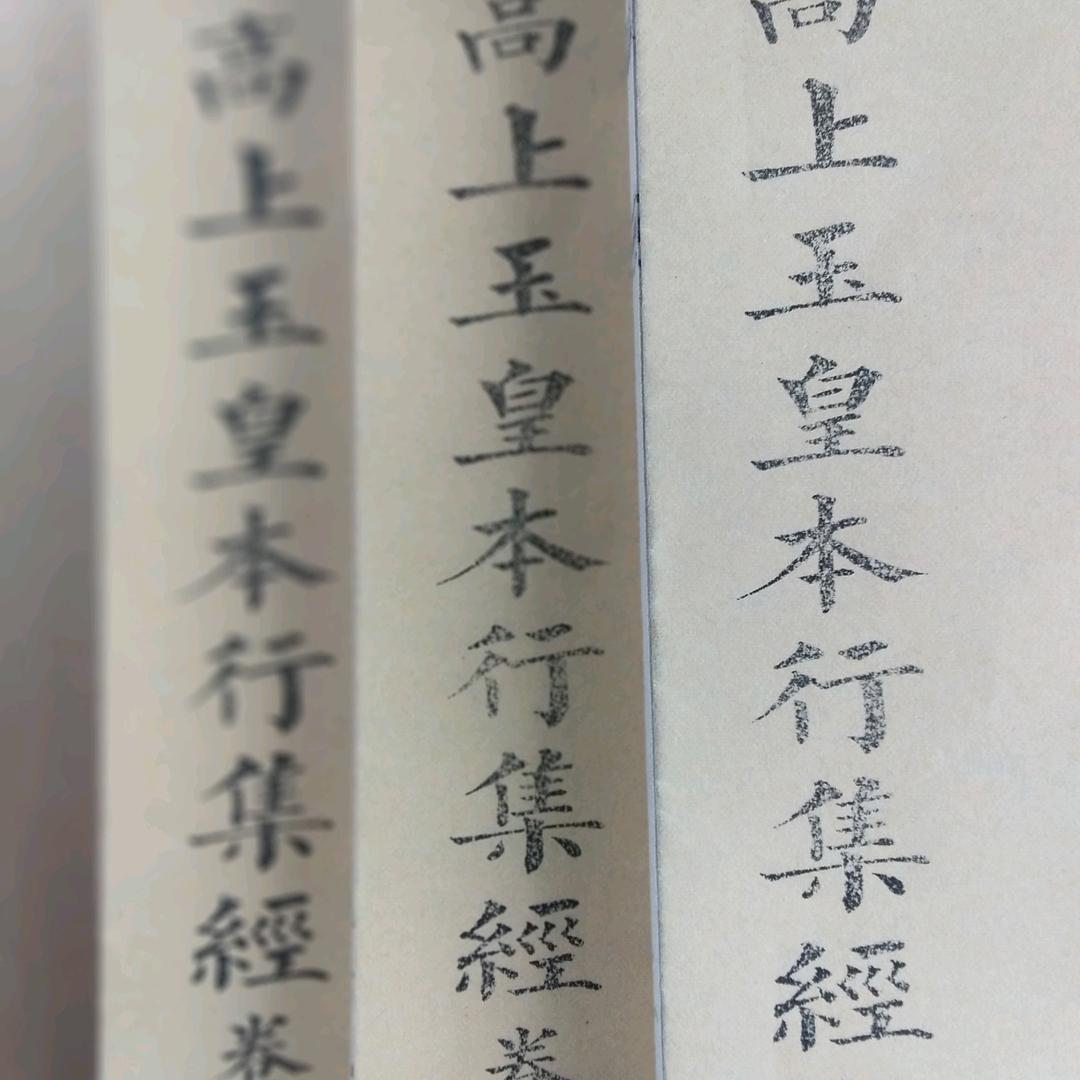 高上玉皇本行集經
高上玉皇本行集經卷
高上玉皇本行集經卷